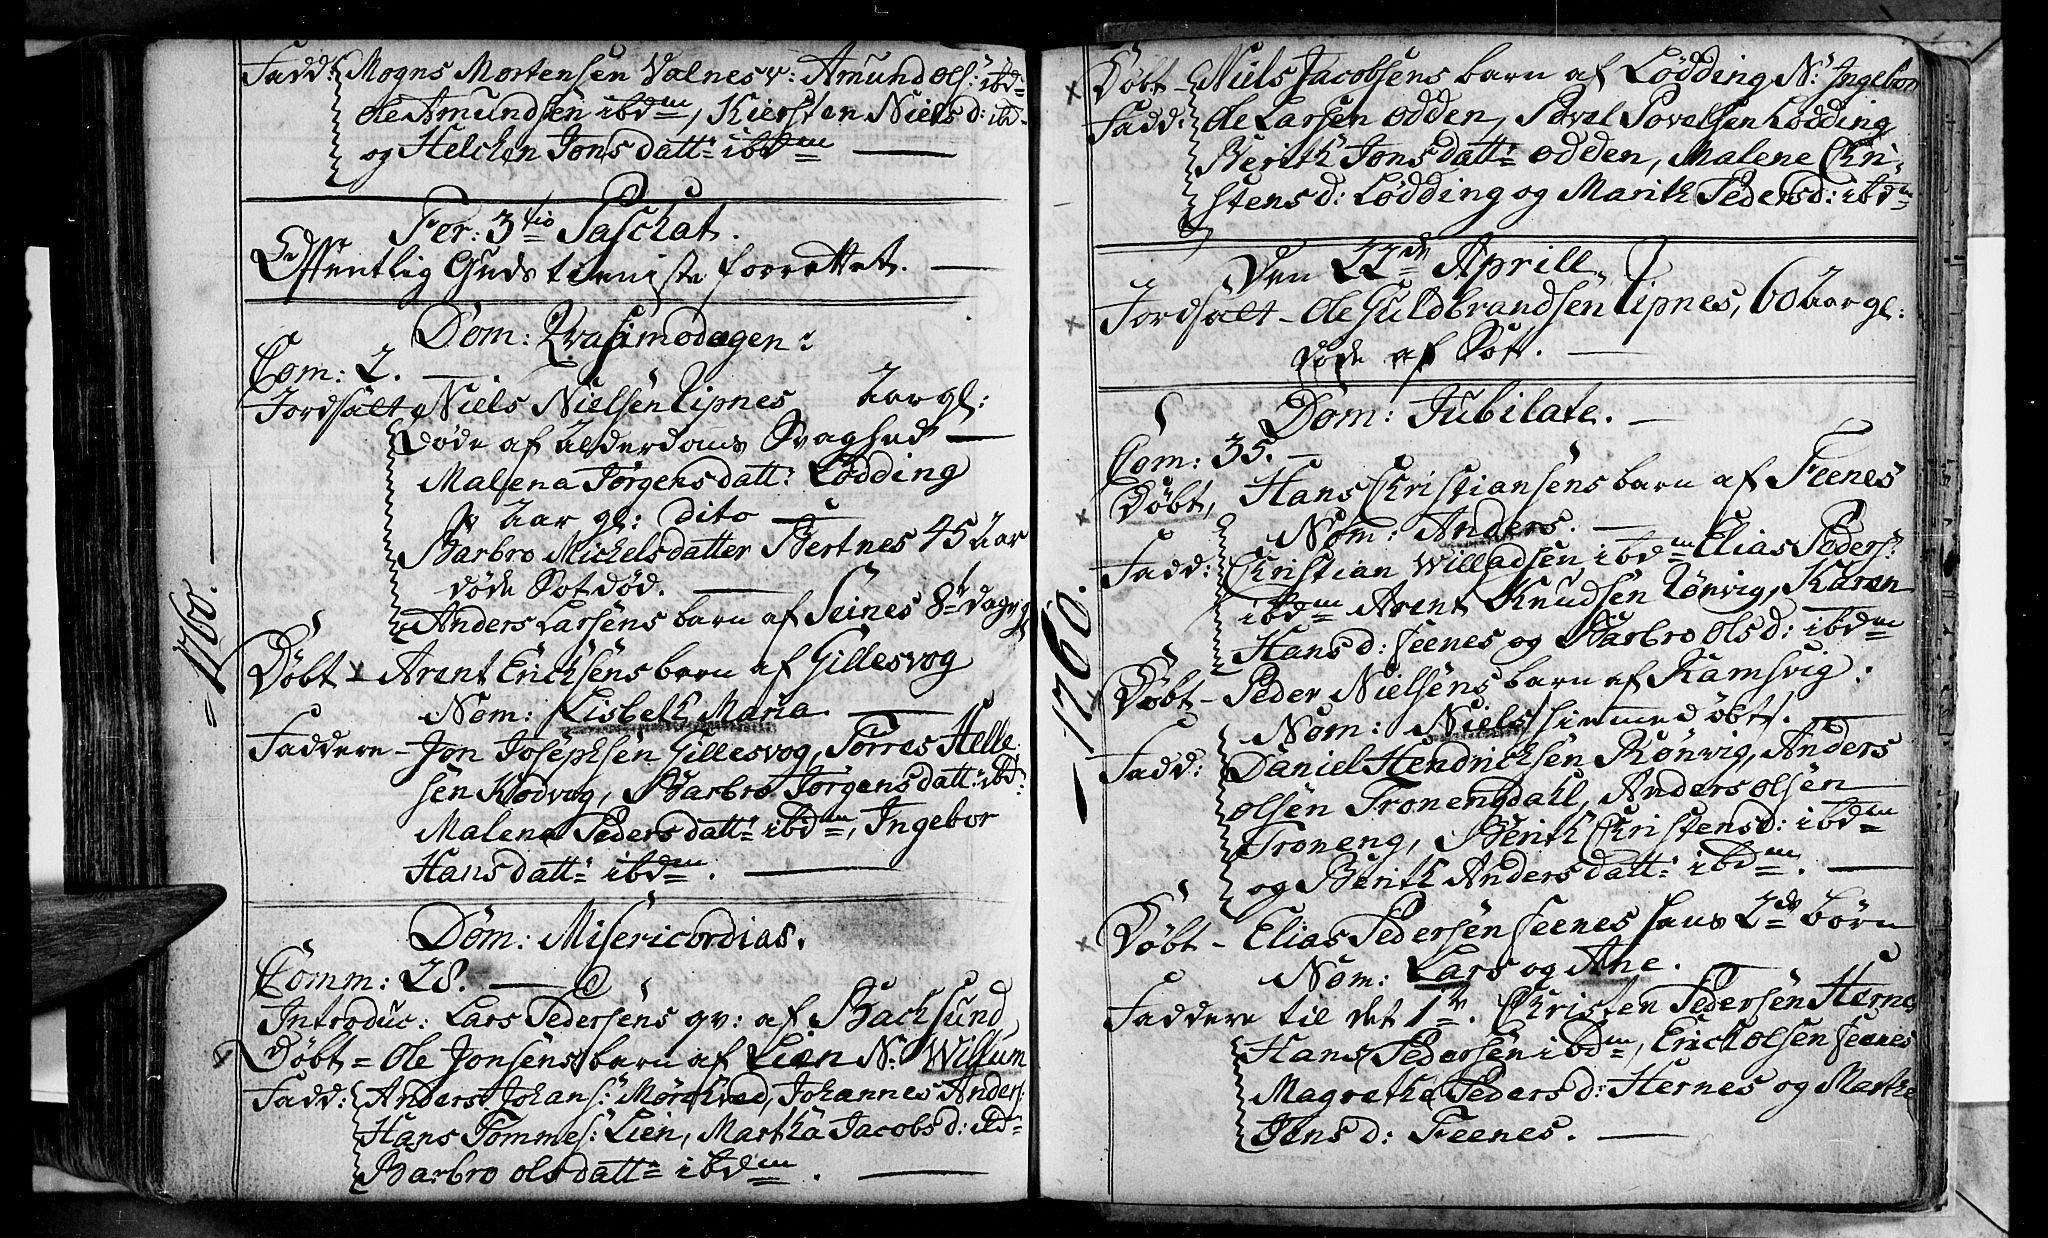 Fadd: Mogns Mortensen Valnes v: Amund Ols: ibd=
Ole Amundsen ibd<sup>m</sup>, Kiersten Niels d: ibd=
og Helchen Jonsdatt: ibd<sup>m</sup>
Fer: 3<sup>tio</sup> Paschat.
Offentlig Guds tieniste forrettet.
Dom: Qvasimodogen:
Com: 2.
Jordfält Niels Nielsen Lipnes Aar gl:
døde af Alderdoms Svaghed
Malena Jørgensdatt: Lødding
Aar gl: dito
Barbro Mickelsdatter Bertnes 45 Aar
døde Sotdød.
Anders Larsens barn af Seines 8<sup>t</sup> dage gl
= 1760. =
Døbt x Arent Ericksens barn af Gillesvog
Nom: Lisbeth Maria.
Faddere - Jon Josephsen Gillesvog, Torres Helle
sen Kodvog, Barbro Jørgensdatt: ibd:
Malena Pedersdatt: ibd<sup>m</sup>, Ingebor
Hansdatt: ibd<sup>m</sup>.
Dom: Misericordias.
Comm: 28.
Introduc: Lars Pedersens qv: af Backsund
x Døbt = Ole Jonsens barn af Lien N: Willum
Fadd: Anders Johans: Mørckved, Johannes Anders:
Hans Tommes: Lien, Martha Jacobs d: ibd=
Barbro Olsdatt: ibd<sup>m</sup>.
x Døbt - Niels Jacobsens barn af Lødding N: Ingebor
Fadd: Ole Larsen Odden, Povel Povelsen Lødding
Berith Jonsdatt: Odden, Malene Chri-
stens d: Lødding og Marith Peders d: ibd<sup>m</sup>
Den 22<sup>de</sup> Aprill.
x Jordfält - Ole Guldbrandsen Lipnes, 60 Aar gl:
døde af Sot.
Dom: Jubilate.
Com: 35.
x Døbt, Hans Christiansens barn af Feenes
Nom: Anders.
Fadd: Christian Willadsen ibd<sup>m</sup> Elias Peders:
ibd<sup>m</sup> Arent Knudsen Lønvig, Karen
Hans d: Feenes og Barbro Ols d: ibd<sup>m</sup>
1760.
x Døbt - Peder Nielsens barn af Ramsvig.
Nom: Niels hiemmedøbt.
Fadd: Daniel Hendricksen Rønvig, Anders
Olsen Tronengdahl, Anders Olsen
Troneng, Berith Christens d: ibd<sup>m</sup>
og Berith Andersdatt: ibd<sup>m</sup>.
x Døbt - Elias Pedersen Feenes hans 2<sup>de</sup> børn
Nom: Lars og Ane.
Faddere til det 1<sup>te</sup>. Christen Pedersen Hernes
Hans Pedersen ibd<sup>m</sup>, Erick Olsen Feenes
Magrethe Peders d: Hernes og Marthe
Jens d: Feenes.